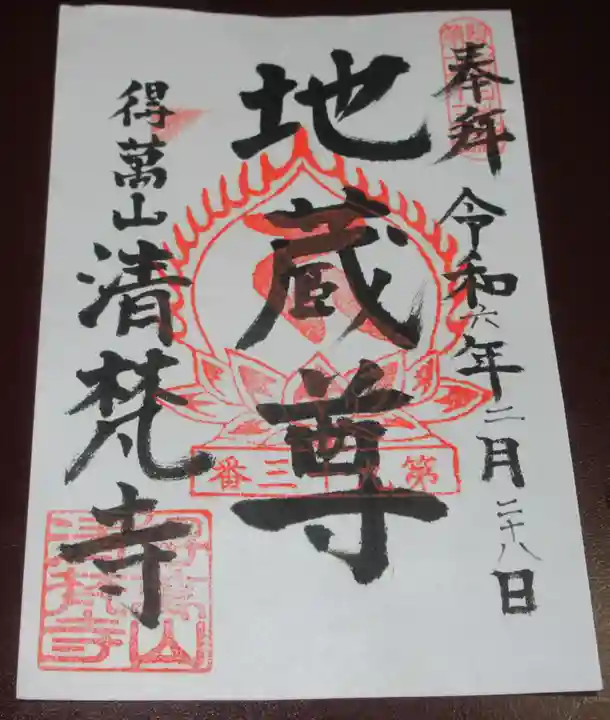 奉拜
令和六年二月二十八日
地蔵尊
得萬山
清梵寺
得萬山
清梵寺